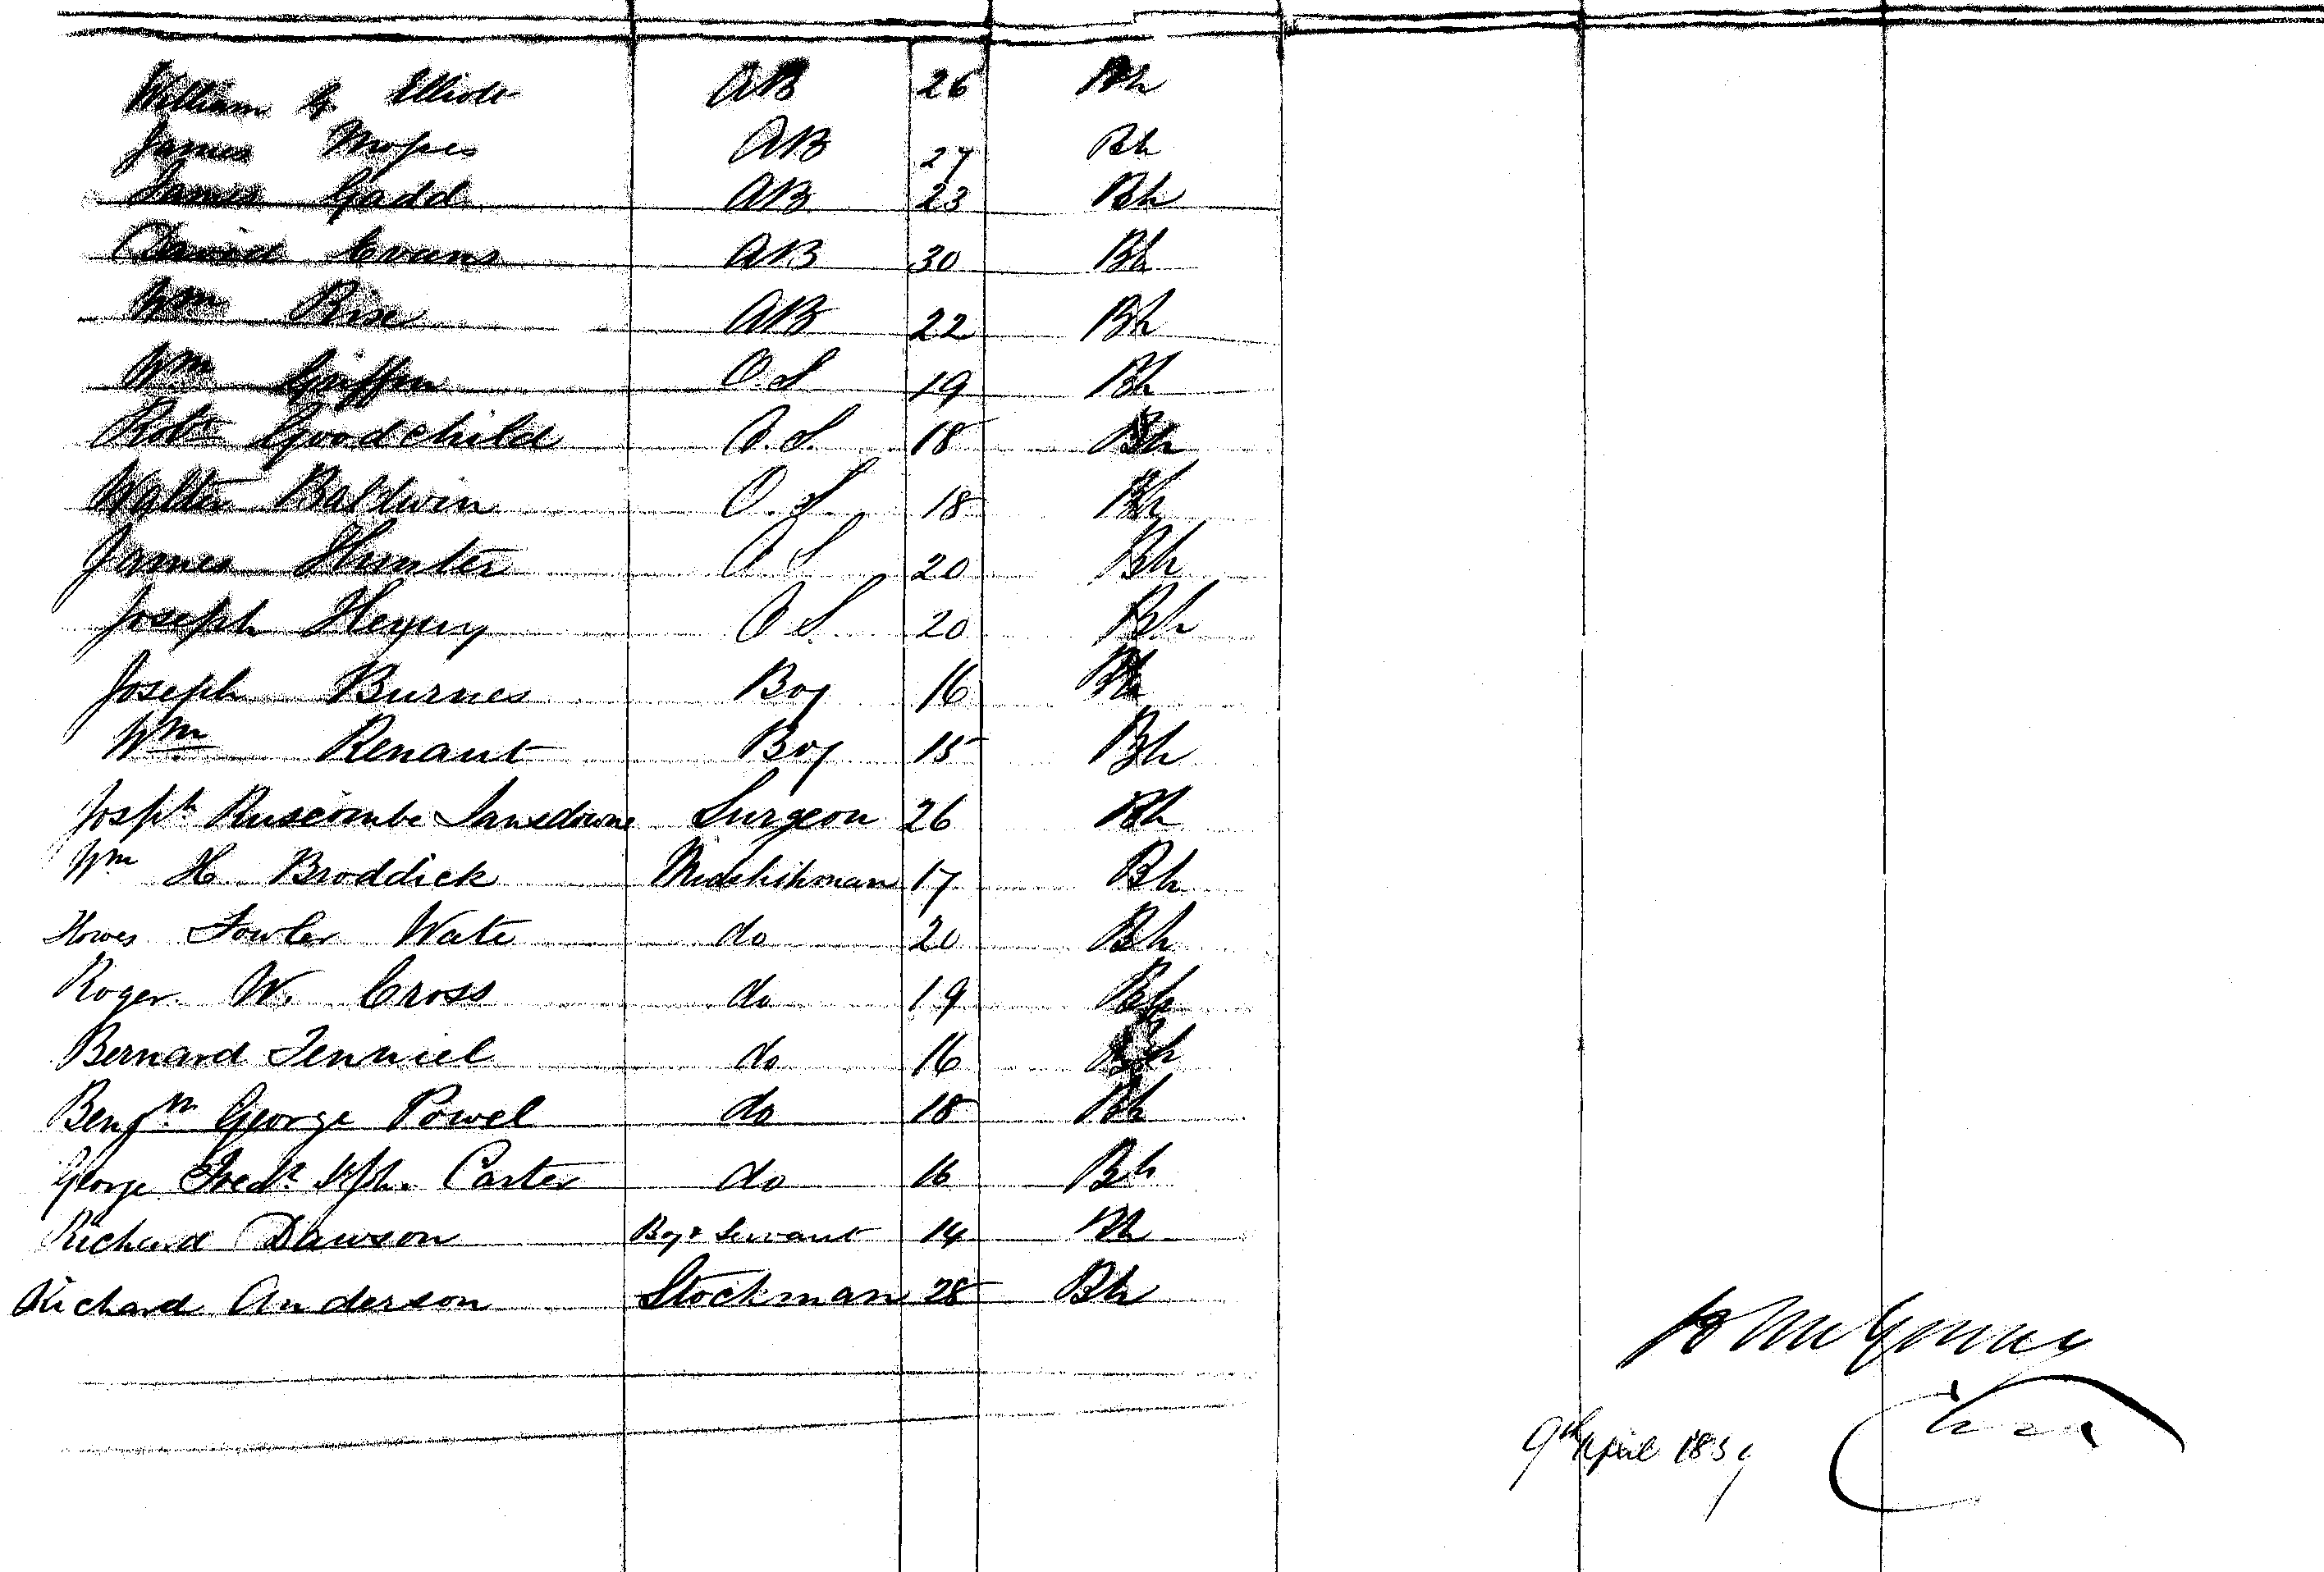 William G Elliott AB 26 Bh
James Moses AB 27 Bh
James Gadd AB 23 Bh
David Evans AB 30 Bh
Wm Rise AB 22 Bh
Wm Griffin O.S 19 Bh
Robt Goodchild O.S. 18 Bh
Walter Baldwin O.S. 18 Bh
James Hunter O S 20 Bh
Joseph O S 20 Bh
Joseph Burnes Boy 16 Bh
Wm Renaut Boy 15 Bh
Josph Ruscombe Lansdowne Surgeon 26 Bh
Wm H Broddick Midshihman 17 Bh
Howes Fowler Wate do 20 Bh
Roger W. Cross do 19 Bh
Bernard Tenniel do 16 Bh
Benjn George Powel do 18 Bh
George Fredk Carter do 16 Bh
Richard Dawson Boy & Servant 14 Bh
Richard Anderson Stockman 28 Bh
9th April 1859